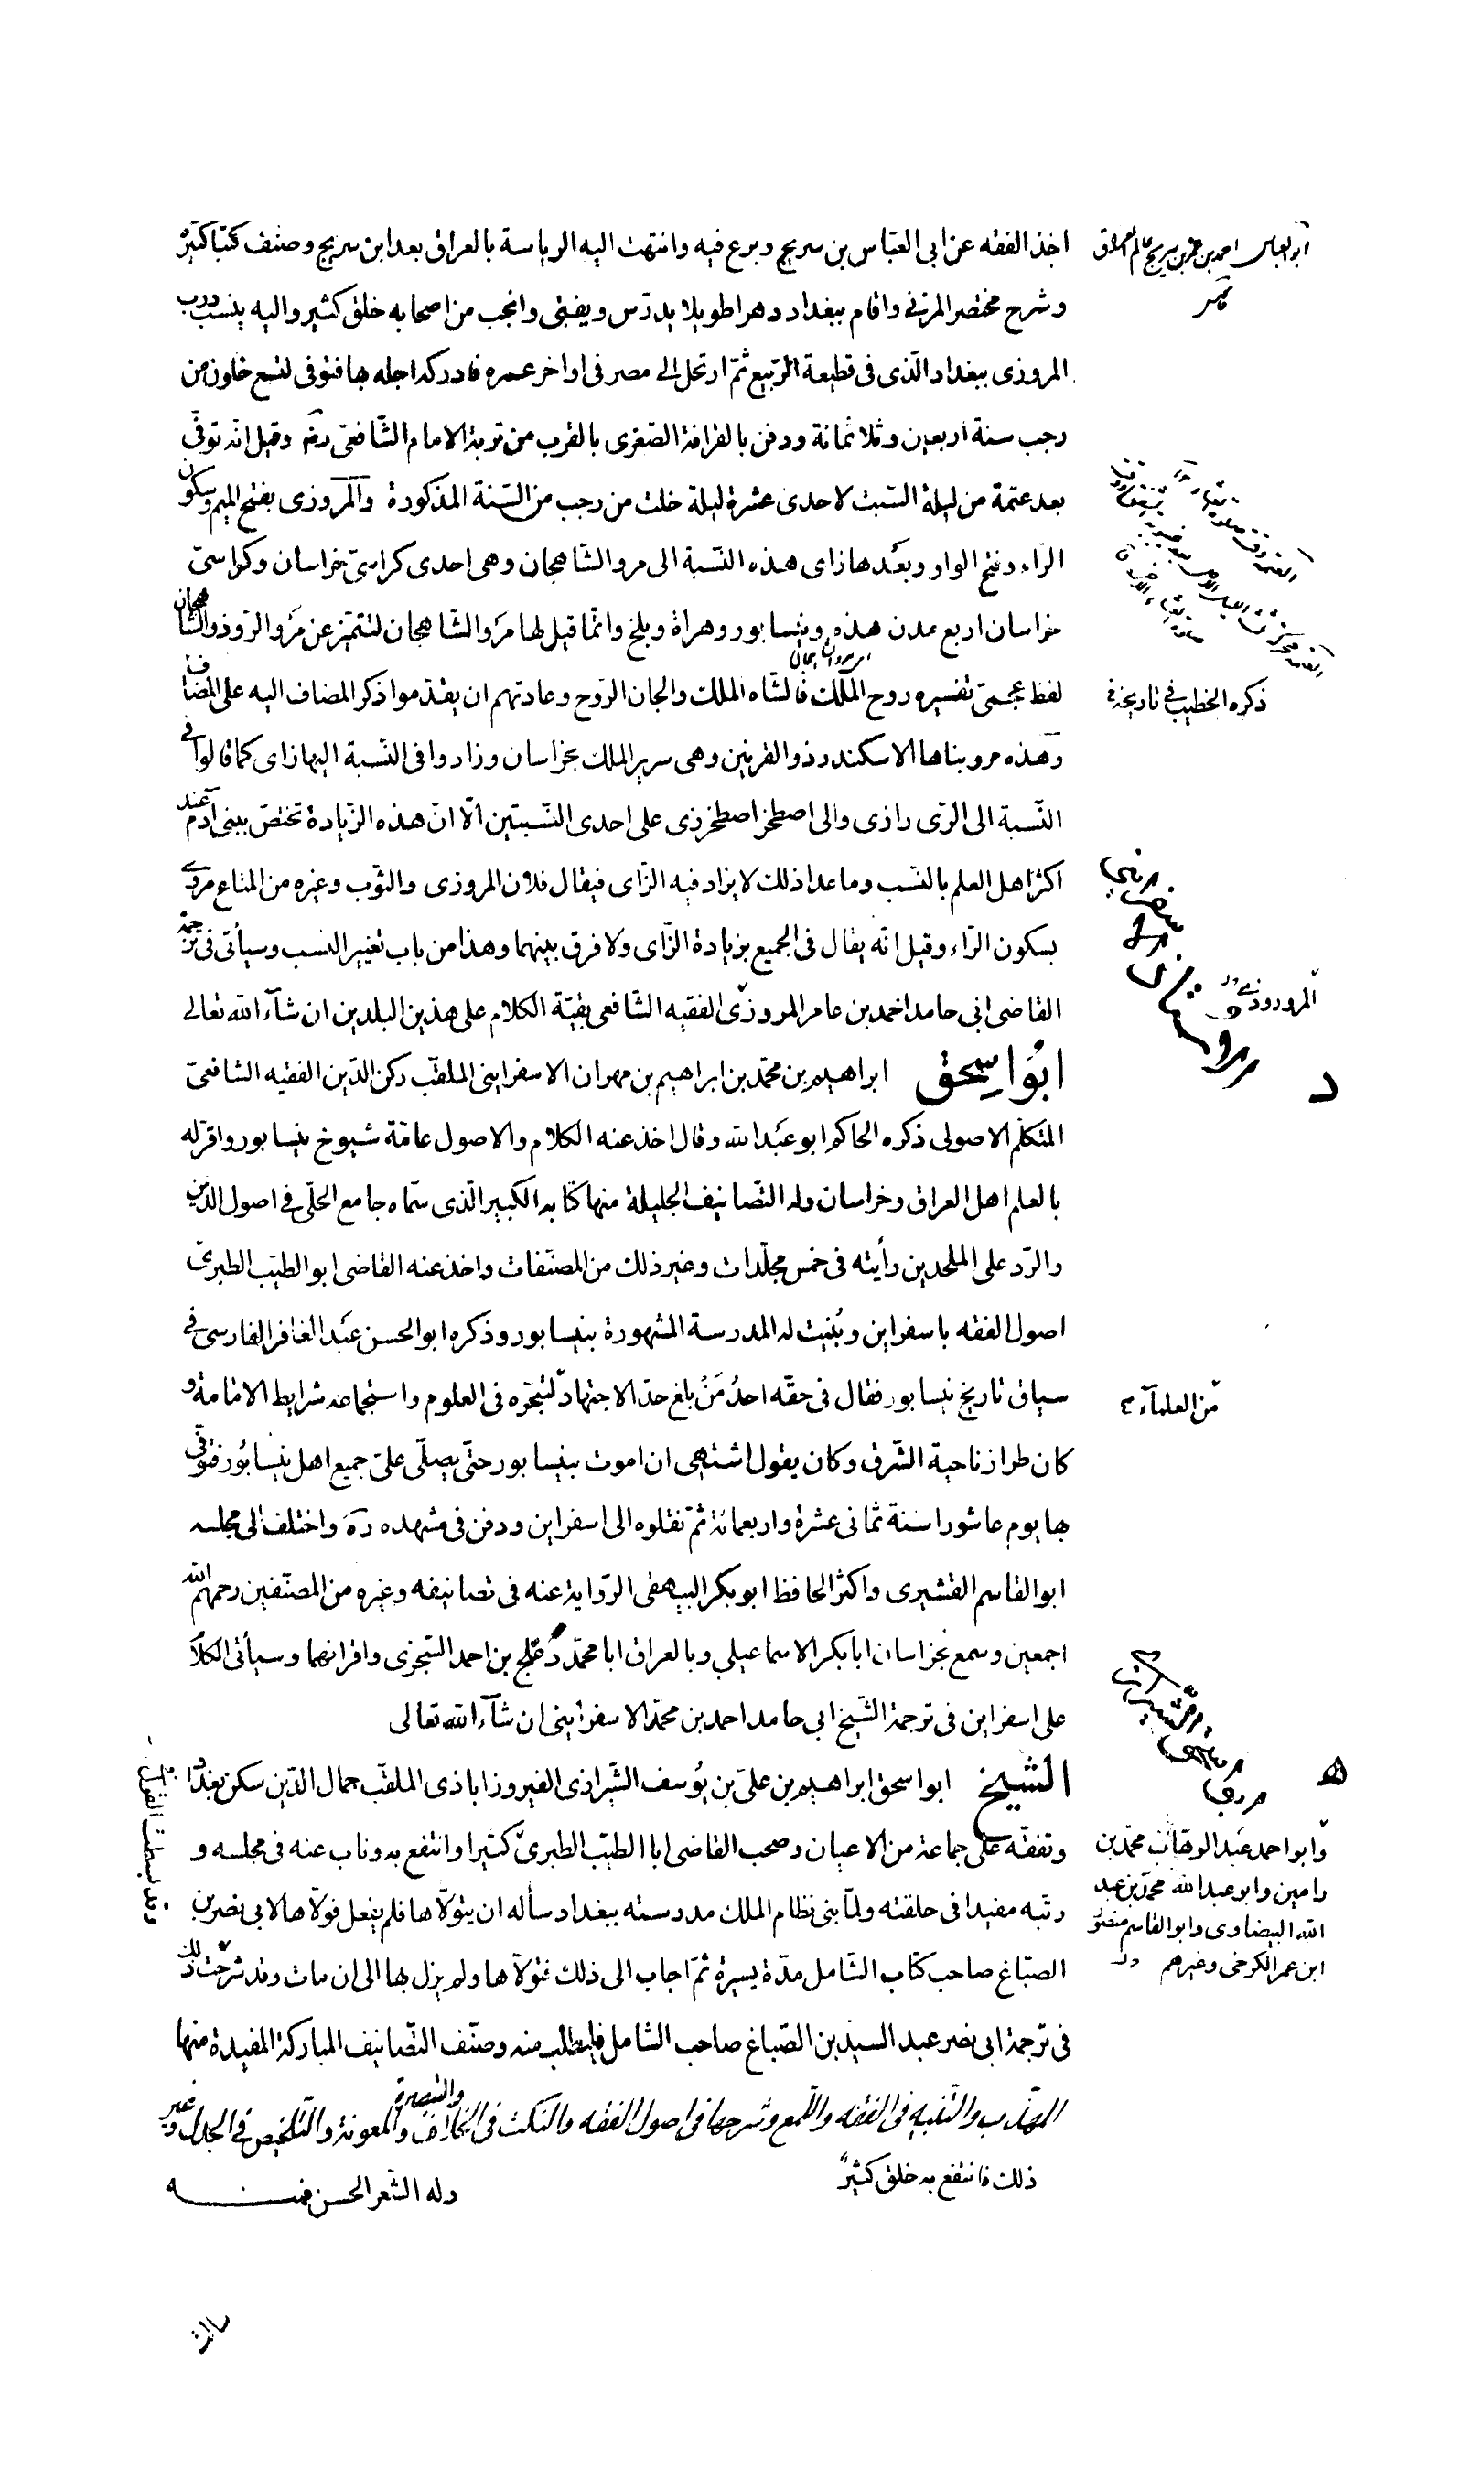 اخذ الفقه عن ابى العبّاس بن سريج وبرع فيه وانتهت اليه الرياسة بالعراق بعد ابن سريج وصنف كتبا كثيرة
وشرح مختصر المزنى واقام ببغداد دهرا طويلا يدرّس ويفتى وانجب من اصحابه خلق كثير واليه ينسب درب
المروزى ببغداد الّذى فى قطيعة الرّبيع ثمّ ارتحل الى مصر فى اواخر عمره فادركه اجله بها فتوفى لتسع خلون من
رجب سنة اربعين وثلاثمائة ودفن بالقرافة الصّغرى بالقرب من تربة الامام الشّافعى رضه وقيل انّه توفّى
بعد عتمة من ليلة السّبت لاحدى عشرة ليلة خلت من رجب من السّنة المذكورة والمروزى بفتح الميم وسكون
الرّاء وفتح الواو وبعدها زاى هذه النّسبة الى مرو الشّاهجان وهى احدى كراسىّ خراسان وكراسىّ
خراسان اربع مدن هذه ونيسابور وهراة وبلخ وانّما قيل لها مرو الشّاهجان لتتميّز عن مرو الرّوذ والشّاهجان
لفظ عجمىّ تفسيره روح الملك فالشّاه الملك والجان الرّوح وعادتهم ان يقدّموا ذكر المضاف اليه على المضاف
وهذه مرو بناها الاسكندر ذو القرنين وهى سرير الملك بخراسان وزادوا فى النّسبة اليها زاى كما قالوا فى
النّسبة الى الرّى رازى والى اصطخر اصطخرزى على احدى النّسبتين الّا انّ هذه الزّيادة تختصّ ببنى آدم عند
اكثر اهل العلم بالنّسب وما عدا ذلك لا يزاد فيه الزّاى فيقال فلان المروزى والثّوب وغيره من المتاع مروى
بسكون الرّاء وقيل انّه يقال فى الجميع بزيادة الزّاى ولا فرق بينهما وهذا من باب تغيير النسب وسيأتى فى ترجمة
القاضى ابى حامد احمد بن عامر المروزّى الفقيه الشّافعى بقيّة الكلام على هذين البلدين ان شآء الله تعالى
ابو اسحق ابراهيم بن محمّد بن ابراهيم بن مهران الاسفراينى الملقّب ركن الدّين الفقيه الشافعىّ
المتكلّم الاصولى ذكره الحاكم ابو عبد الله وقال اخذ عنه الكلام والاصول عامّة شيوخ نيسابور واقرّ له
بالعلم اهل العراق وخراسان وله التصّانيف الجليلة منها كتابه الكبير الّذى سمّاه جامع الحلّى فى اصول الدّين
والرّد على الملحدين رأيته فى خمس مجلّدات وغير ذلك من المصنّفات واخذ عنه القاضى ابو الطيّب الطبرىّ
اصول الفقه باسفراين وبُنيت له المدرسة المشهورة بنيسابور وذكره ابو الحسن عبد الغافر الفارسى فى
سياق تاريخ نيسابور فقال فى حقّه احدُ مَنْ بلغ حدّ الاجتهاد لتبحّره فى العلوم واستجماعه شرايط الامامة و
كان طراز ناحية الشّرق وكان يقول اشتهى ان اموت بنيسابور حتّى يصلّى علىّ جميع اهل نيسابور فتوفّى
بها يوم عاشورا سنة ثمانى عشرة واربعمائة ثمّ نقلوه الى اسفراين ودفن فى مشهده ره واختلف الى مجلسه
ابو القاسم القشيرى واكثر الحافظ ابو بكر البيهقى الرّواية عنه فى تصانيفه وغيره من المصنّفين رحمهم الله
اجمعين وسمع بخراسان ابا بكر الاسماعيلى وبالعراق ابا محمّد دعلج بن احمد السّجزى واقرانهما وسيأتى الكلا
على اسفراين فى ترجمة الشّيخ ابى حامد احمد بن محمّد الاسفراينى ان شآء الله تعالى
الشّيخ ابو اسحق ابراهيم بن علىّ بن يوسف الشّيرازى الفيروزاباذى الملقّب جمال الدّين سكن بغداد
وتفقّه على جماعة من الاعيان وصحب القاضى ابا الطيّب الطبرىّ كثيرا وانتفع به وناب عنه فى مجلسه و
رتّبه مفيدا فى حلقته ولمّا بنى نظام الملك مدرسته ببغداد سأله ان يتولّاها فلم يفعل فولّاها لابى نصر بن
الصبّاغ صاحب كتاب الشّامل مدّة يسيرة ثمّ اجاب الى ذلك فتولّاها ولم يزل بها الى ان مات وقد شرحت ذلك
فى ترجمة ابى نصر عبد السيّد بن الصّباغ صاحب الشامل فليطلب منه وصنّف التصّانيف المباركة المفيدة منها
المهذّب والتّنبيه فى الفقه واللّمع وشرحها فى اصول الفقه والنكت فى الخلاف والتبصرة والمعونة والتّلخيص فى الجدل وغير
ذلك فانتفع به خلق كثيرٌ
وله الشّعر الحسن فمنه
ابو العباس احمد بن عمر بن سريج
ذكره الخطيب فى تاريخه فى
المروروذى
د
من العلمآء
ه
وابو احمد عبد الوهّاب محمّد بن
رامين وابو عبد الله محمّد بن عبد
الله البيضاوى وابو القاسم منصور
ابن عمر الكرخى وغيرهم